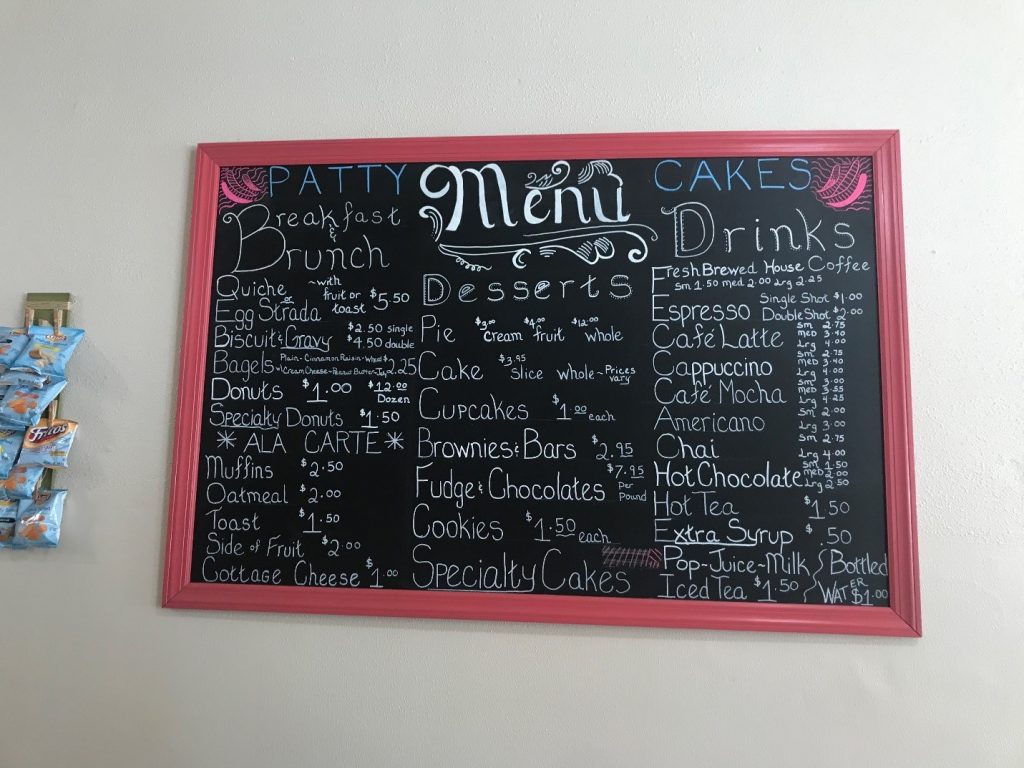 PATTY Menu CAKES
Breakfast
&
Brunch
Quiche ~with
or fruit or $5.50
Egg Strada toast
Biscuit & Gravy $2.50 single
$4.50 double
Bagels Plain-Cinnamon Raisin-Wheat $2.25
w/Cream Cheese-Peanut Butter-Jelly
Donuts $1.00 $12.00
Dozen
Specialty Donuts $1.50
* ALA CARTE *
Muffins $2.50
Oatmeal $2.00
Toast $1.50
Side of Fruit $2.00
Cottage Cheese $1.00
Desserts
Pie $3.00 cream $4.00 fruit $12.00 whole
Cake $3.95 Slice whole~Prices
vary
Cupcakes $1.00 each
Brownies & Bars $2.95
Fudge & Chocolates $7.95
Per
Pound
Cookies $1.50 each
Specialty Cakes
Drinks
Fresh Brewed House Coffee
sm 1.50 med 2.00 lrg 2.25
Espresso Single Shot $1.00
Double Shot $2.00
Café Latte sm 2.75
med 3.40
lrg 4.00
Cappuccino sm 2.75
med 3.40
lrg 4.00
Café Mocha sm 3.00
med 3.55
lrg 4.25
Americano sm 2.00
lrg 3.00
Chai sm 2.75
lrg 4.00
Hot Chocolate sm 1.50
med 2.00
lrg 2.50
Hot Tea $1.50
Extra Syrup $.50
Pop~Juice~Milk Bottled
Iced Tea $1.50 WATER $1.00
Fritos